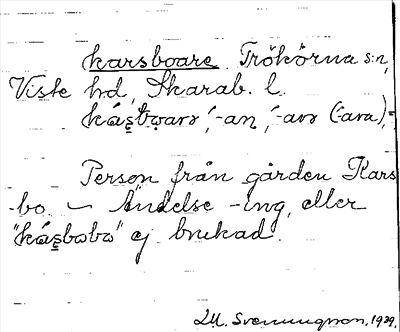 karsboare Trökörna s:n,
Viste hd, Skarab. l.
-an, (-ara),
Person från gården Kars
-bo. — Ändelse -ing, eller
ej brukad.
Svenungsson, 1929.